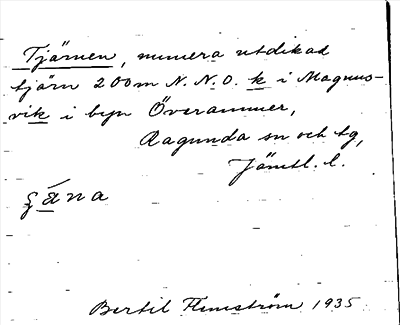 Tjärnen, numera utdikad
tjärn 200m N.N.O. k i Magnus-
vik i byn Överammer,
Ragunda sn och tg,
Jämtl. l.
Bertil Flemström 1935